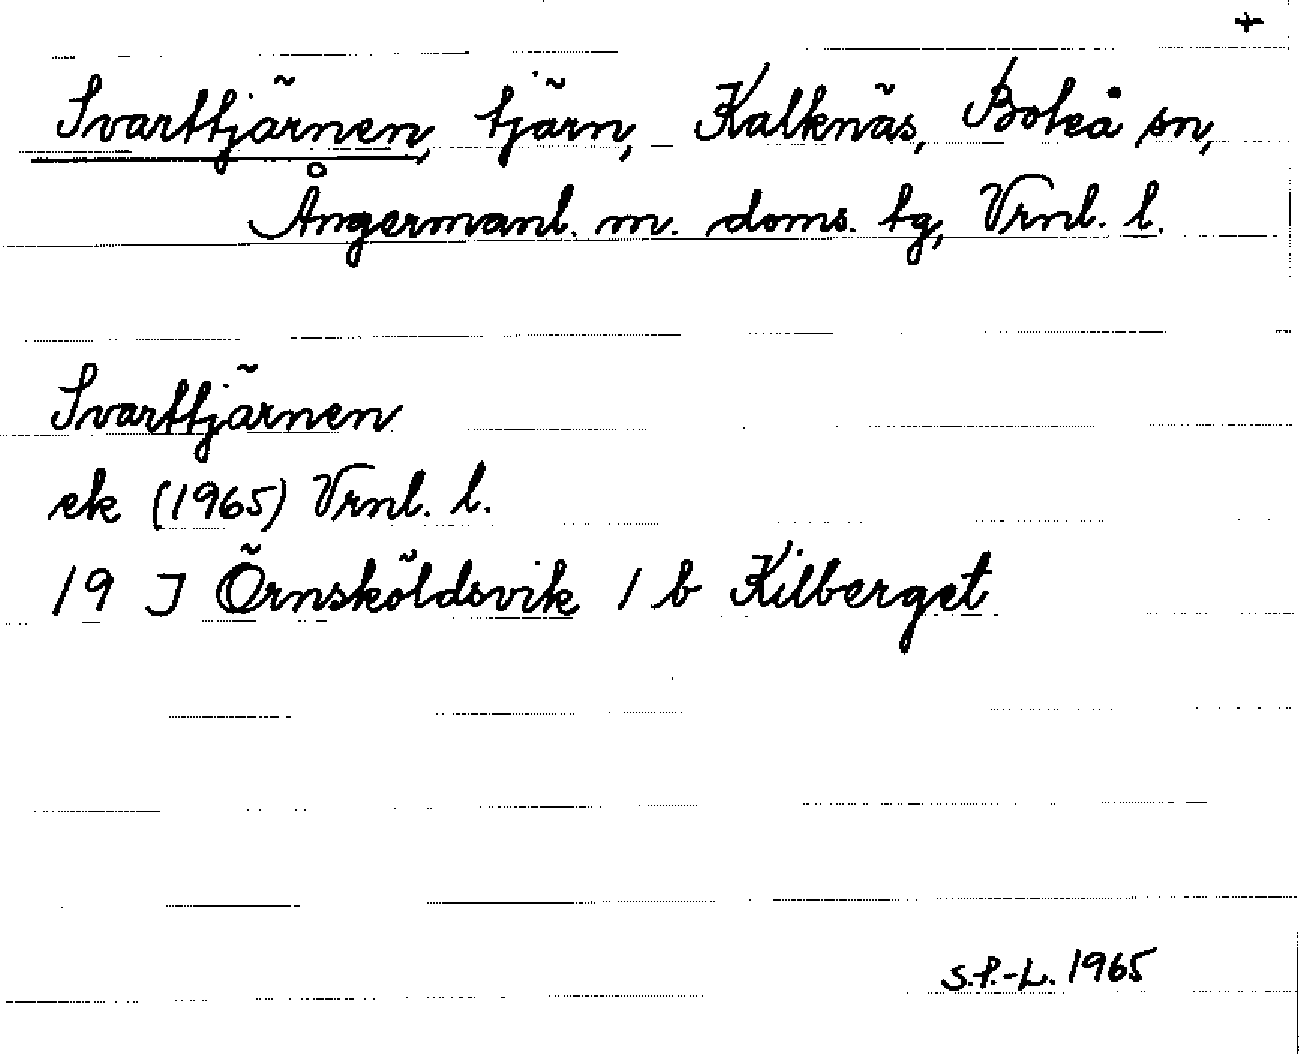 +
Svarttjärnen, tjärn, Kalknäs, Boteå sn,
Ångermanl. m. doms. tg, Vrnl. l.
Svarttjärnen
ek (1965) Vrnl. l.
19 J Örnsköldsvik 1 b Kilberget
S.P.-L. 1965